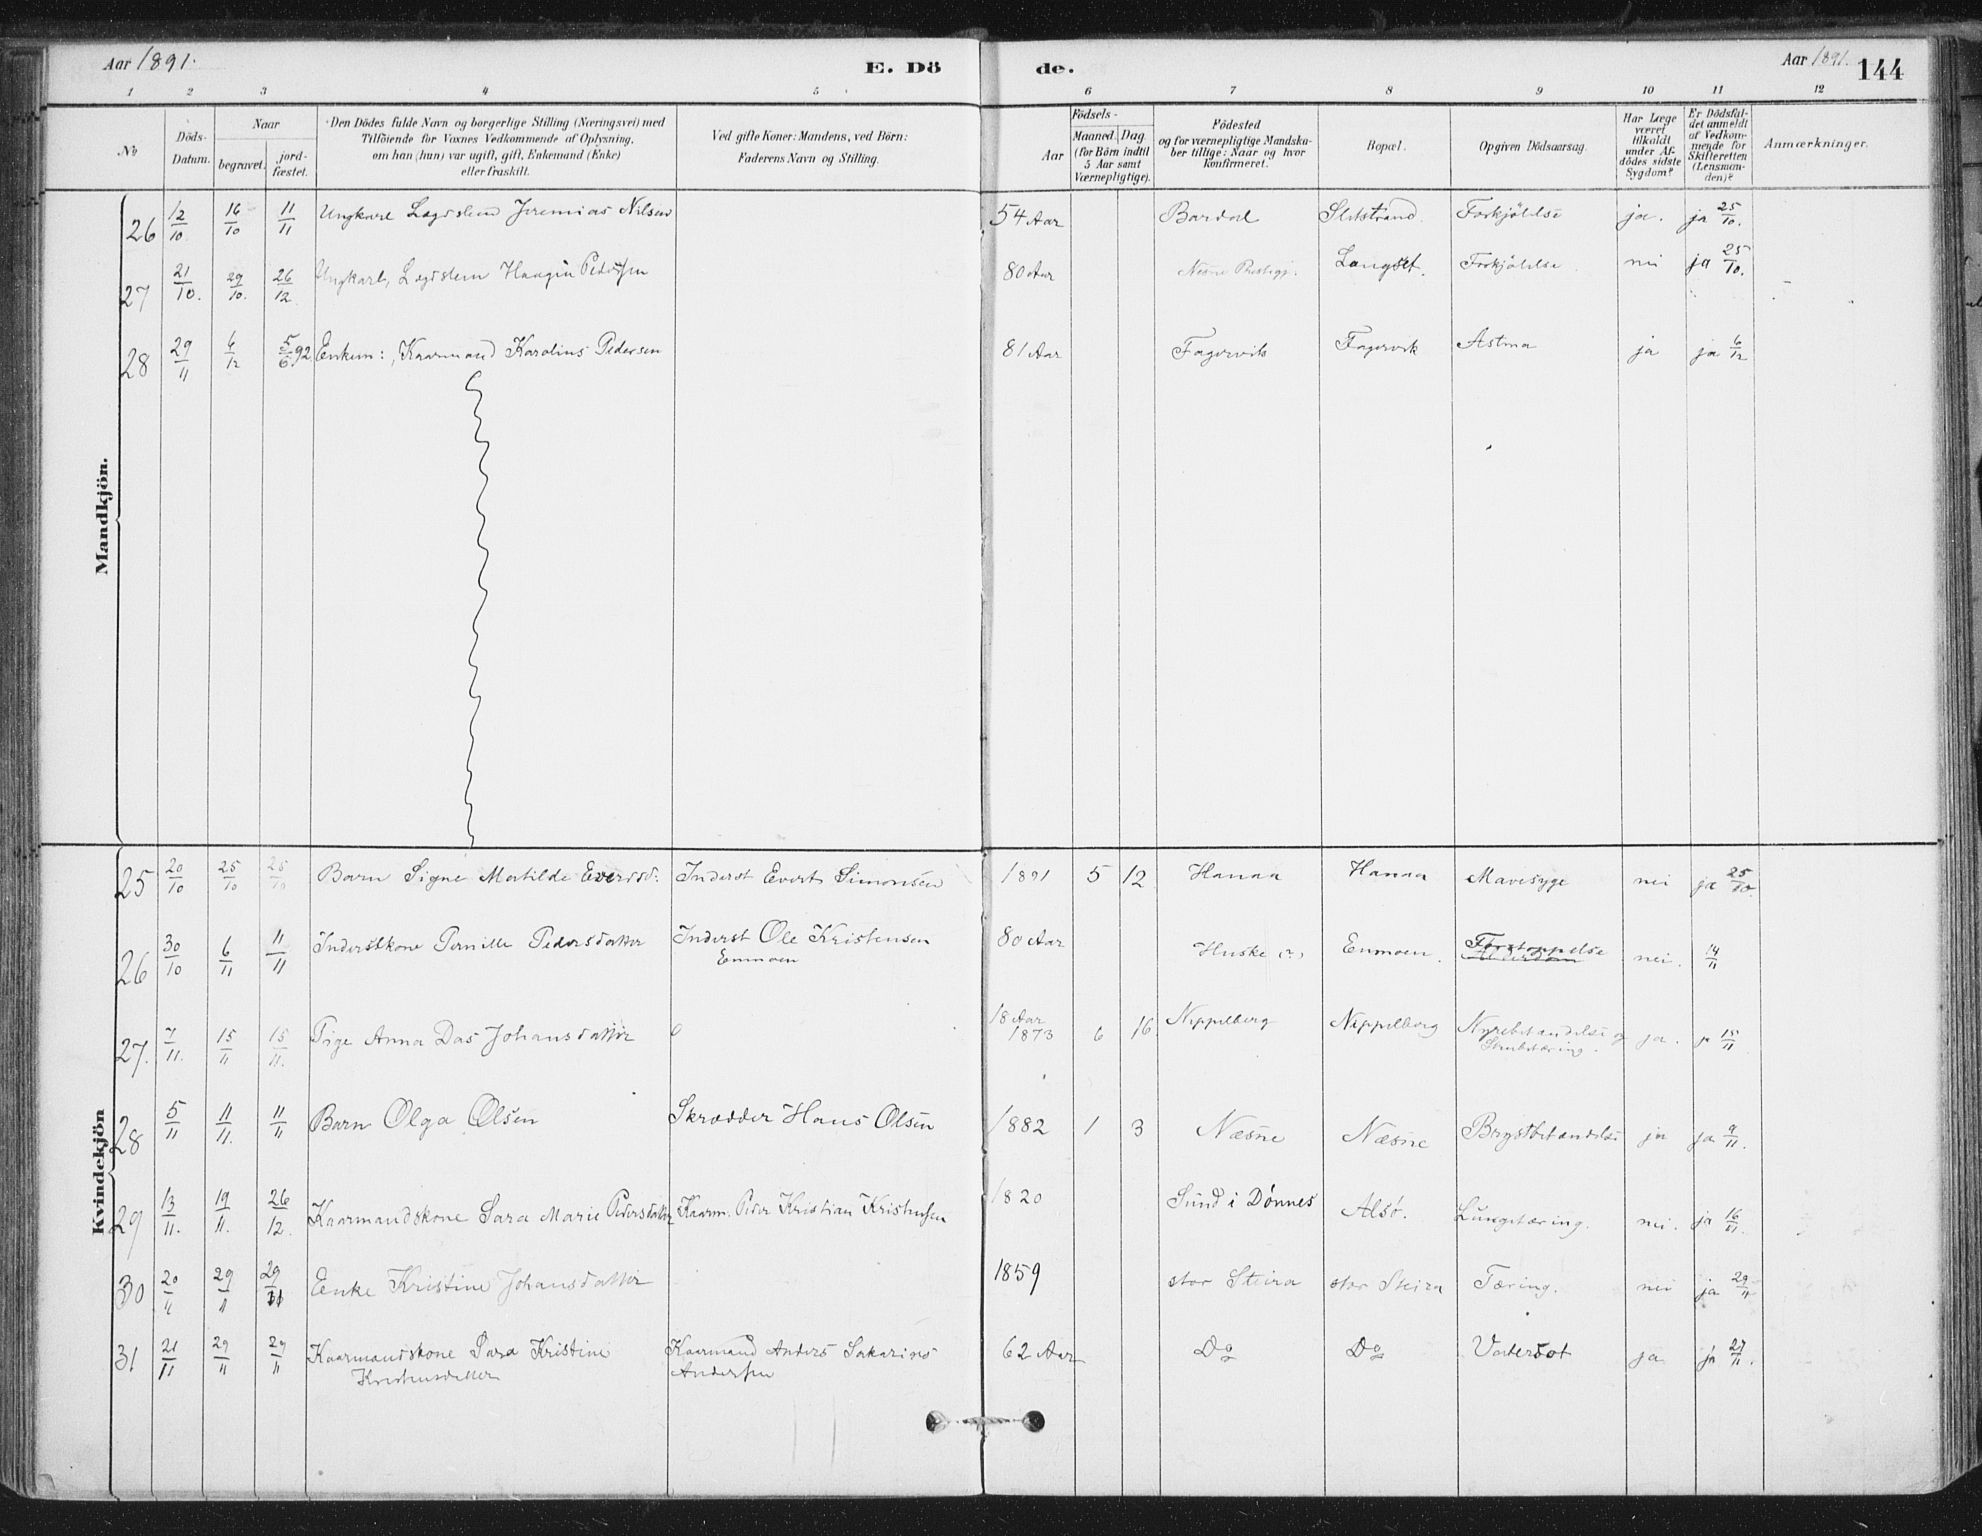 Aar 1891. E. Dö de. Aar 1891. 144
1 2 3 4 5 6 7 8 9 10 11 12
No Döds-Datum. Naar begravet. jord-fæstet. Den Dödes fulde Navn og borgerlige Stilling (Næringsvei) med Tilföiende for Voxnes Vedkommende af Oplysning, om han (hun) var ugift, gift, Enkemand (Enke) eller fraskilt. Ved gifte Koner: Mandens, ved Börn: Faderens Navn og Stilling. Födsels- Aar Maaned. Dag. (for Börn indtil 5 Aar samt Værnepligtige). Födested og for værnepligtige Mandskaber tillige: Naar og hvor konfirmeret. Bopæl. Opgiven Dödsaarsag. Har Læge været tilkaldt under Afdödes sidste Sygdom? Er Dödsfaldet anmeldt af Vedkommende for Skifteretten (Lensmanden)? Anmærkninger.
Mandkjön.
26 12/10 16/10 11/11 Ungkarl Lægdslem Jeremias Nilsen 54 Aar Bardal Sletstrand. Forkjölelse ja. ja 25/10.
27 21/10. 29/10. 26/12 Ungkarl, Lægdslem Haagen Pedersen 80 Aar Nesne Prestegj. Langset. Forkjölelse. nei ja 25/10.
28 29/11 6/12 5/6 92 Enkem:, Kaarmand Karolius Pedersen 81 Aar Fagervik Fagervik Astma ja ja 6/12
Kvindekjön
25 20/10 25/10 25/10 Barn Signe Matilde Evertsd. Inderst Evert Simonsen 1891 5 12 Hanaa Hanaa Mavesyge nei ja 25/10.
26 30/10 6/11 11/11 Inderstkone Pernille Pedersdatter Inderst Ole Kristensen 80 Aar Huske (?) Enmoen. Forstoppelse nei. 14/11
Enmoen Alderdom
27. 7/11. 15/11 15/11. Pige Anna Das Johansdatter 18 Aar
1873 6 16 Nippelberg Nippelberg Nyrebetændelse og ja. ja 15/11
28 5/11 11/11. 11/11 Barn Olga Olsen Skrædder Hans Olsen 1882 1 3 Næsne Næsne Brystbetændelse ja ja 9/11.
29 13/11. 19/11. 26/12. Kaarmandskone Sara Marie Pedersdatter Kaarm. Peder Kristian Kristensen 1820 Sund i Dønnes Alsø. Lungetæring. nei. ja 16/11
30 20/11 29/11 29/11 Enke Kristine Johansdatter 1859 stor Steira stor Steira Tæring. nei ja 29/11
31 21/11 29/11 29/11 Kaarmandskone Sara Kristine Kaarmand Anders Sakarias 62 Aar Do Do Vatersot ja ja 27/11.
Kristensdatter Andersen